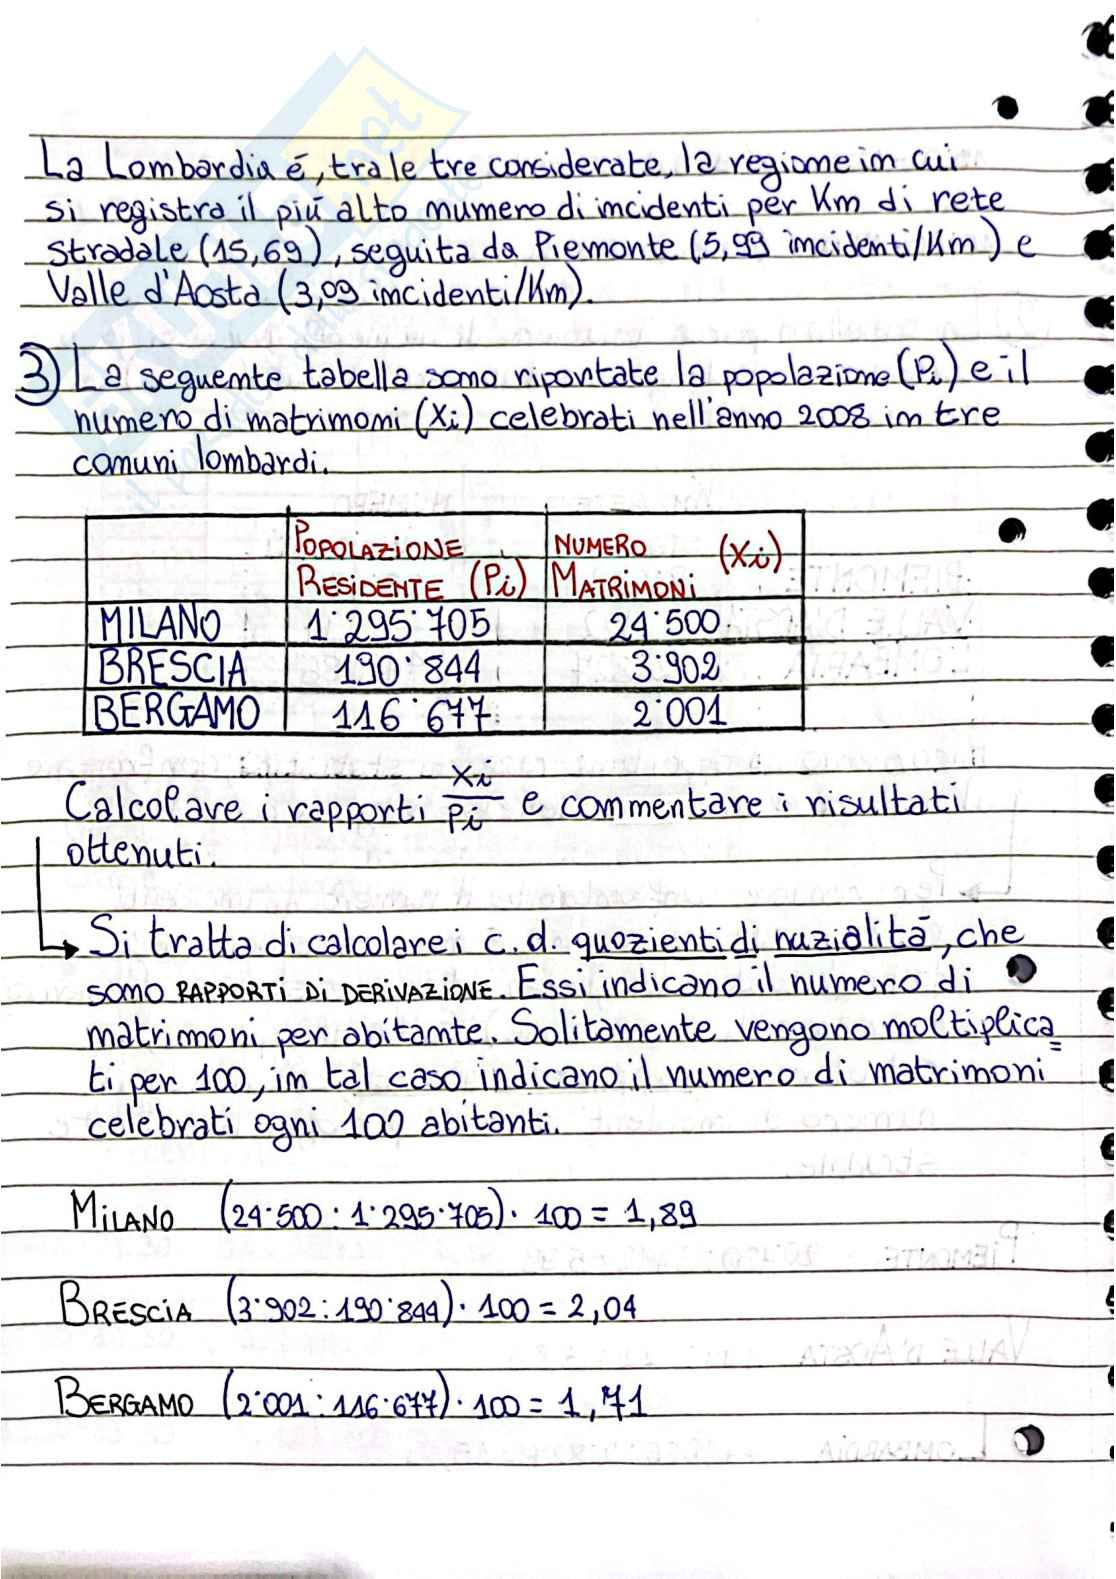 La Lombardia é, tra le tre considerate, la regione in cui
si registra il piú alto numero di incidenti per Km di rete
stradale (15,69), seguita da Piemonte (5,99 incidenti/Km) e
Valle d'Aosta (3,09 incidenti/Km).
3) La seguente tabella sono riportate la popolazione (Pi) e il
numero di matrimoni (Xi) celebrati nell'anno 2008 in tre
comuni lombardi.
POPOLAZIONE RESIDENTE (Pi) NUMERO MATRIMONI (Xi)
MILANO 1˙295˙705 24˙500
BRESCIA 190˙844 3˙902
BERGAMO 116˙677 2˙001
Calcolare i rapporti Xi/Pi e commentare i risultati
ottenuti.
→ Si tratta di calcolare i c.d. quozienti di nuzialitá, che
sono RAPPORTI DI DERIVAZIONE. Essi indicano il numero di
matrimoni per abitante. Solitamente vengono moltiplica=
ti per 100, in tal caso indicano il numero di matrimoni
celebrati ogni 100 abitanti.
MILANO (24˙500 : 1˙295˙705)· 100 = 1,89
BRESCIA (3˙902 : 190˙844)· 100 = 2,04
BERGAMO (2˙001 : 116˙677)· 100 = 1,71